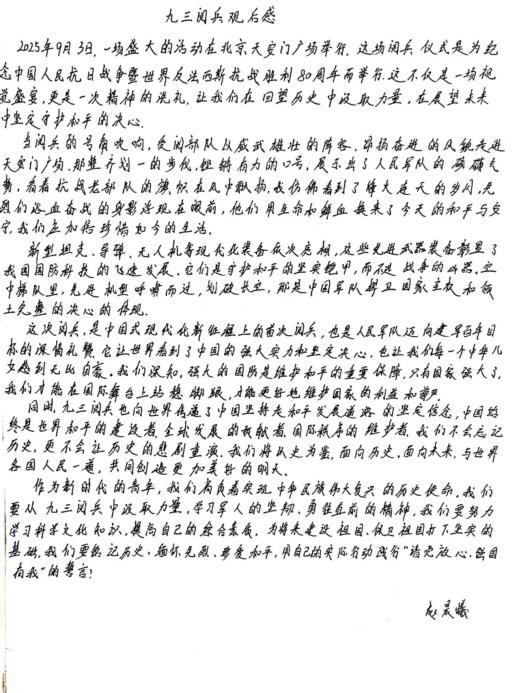 九三阅兵观后感
2025年9月3日,一场盛大的活动在北京天安门广场举行,这场阅兵仪式是为纪
念中国人民抗日战争暨世界反法西斯抗战胜利80周年而举行,这不仅是一场视
觉盛宴,更是一次精神的洗礼,让我们在回望历史中汲取力量,在展望未来
中坚定守护和平的决心。
当阅兵的号角吹响,受阅部队以威武雄壮的阵容、昂扬奋进的风貌走进
天安门广场。那整齐划一的步伐,铿锵有力的口号,展示出了人民军队的磅礴气
势,看着抗战老部队的旗帜在风中飘扬,我仿佛看到了烽火连天的岁月,先
烈们浴血奋战的身影浮现在眼前,他们用生命和鲜血换来了今天的和平与安
宁,我们应加倍珍惜如今的生活。
新型坦克、导弹、无人机等现代化装备依次亮相,这些先进武器装备彰显了
我国国防科技的飞速发展,它们是守护和平的坚实铠甲,而不是战争的凶器,空
中梯队里,先进机型呼啸而过,划破长空,那是中国军队捍卫国家主权和领
土完整的决心的体现。
这次阅兵,是中国式现代化新征程上的首次阅兵,也是人民军队迈向建军百年目
标的深情礼赞,它让世界看到了中国的强大实力和坚定决心,也让我们每一个中华儿
女感到无比自豪。我们深知,强大的国防是维护和平的重要保障,只有国家强大了,
我们才能在国际舞台上站稳脚跟,才能更好地维护国家的利益和尊严。
同时,九三阅兵也向世界传递了中国坚持走和平发展道路的坚定信念,中国始
终是世界和平的建设者、全球发展的贡献者、国际秩序的维护者,我们不会忘记
历史,更不会让历史的悲剧重演,我们将以史为鉴,面向历史、面向未来,与世界
各国人民一道,共同创造更加美好的明天。
作为新时代的青年,我们肩负着实现中华民族伟大复兴的历史使命,我们
要从九三阅兵中汲取力量,学习军人的坚韧、勇往直前的精神,我们要努力
学习科学文化知识,提高自己的综合素质,为将来建设祖国、保卫祖国打下坚实的
基础,我们要铭记历史、缅怀先烈、珍爱和平,用自己的实际行动践行“请党放心,强国
有我”的誓言!
赵晨曦